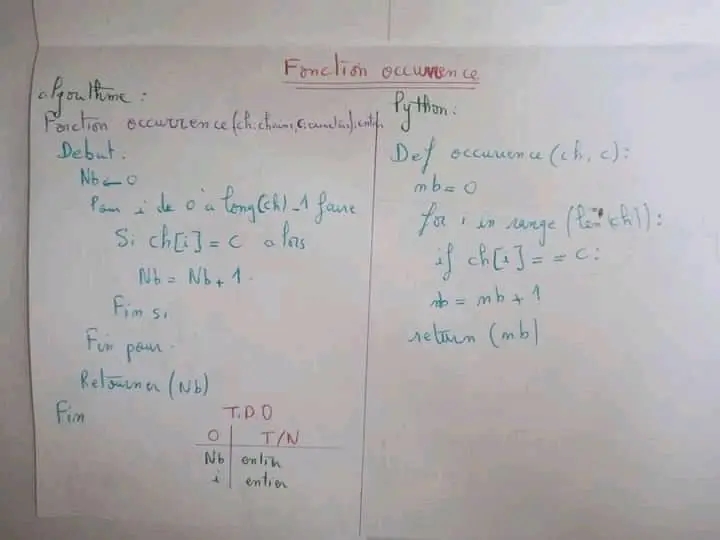 Fonction occurrence
algorithme :
Fonction occurrence (ch: chaine, c: caractère): entier
Debut.
Nb ← 0
Pour i de 0 à long(ch) - 1 faire
Si ch[i] = c alors
Nb = Nb + 1.
Fin si
Fin pour.
Retourner (Nb)
Fin
T.D O
O T/N
Nb entier
i entier
Python :
Def occurrence (ch, c) :
nb = 0
for i in range (len(ch)) :
if ch[i] == c :
nb = nb + 1
return (nb)